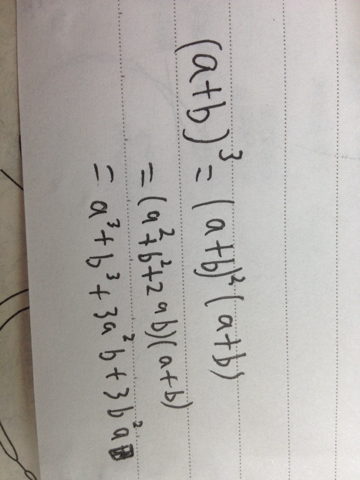 (a+b)³ = (a+b)²(a+b)
= (a²+b²+2ab)(a+b)
= a³+b³+3a²b+3b²a